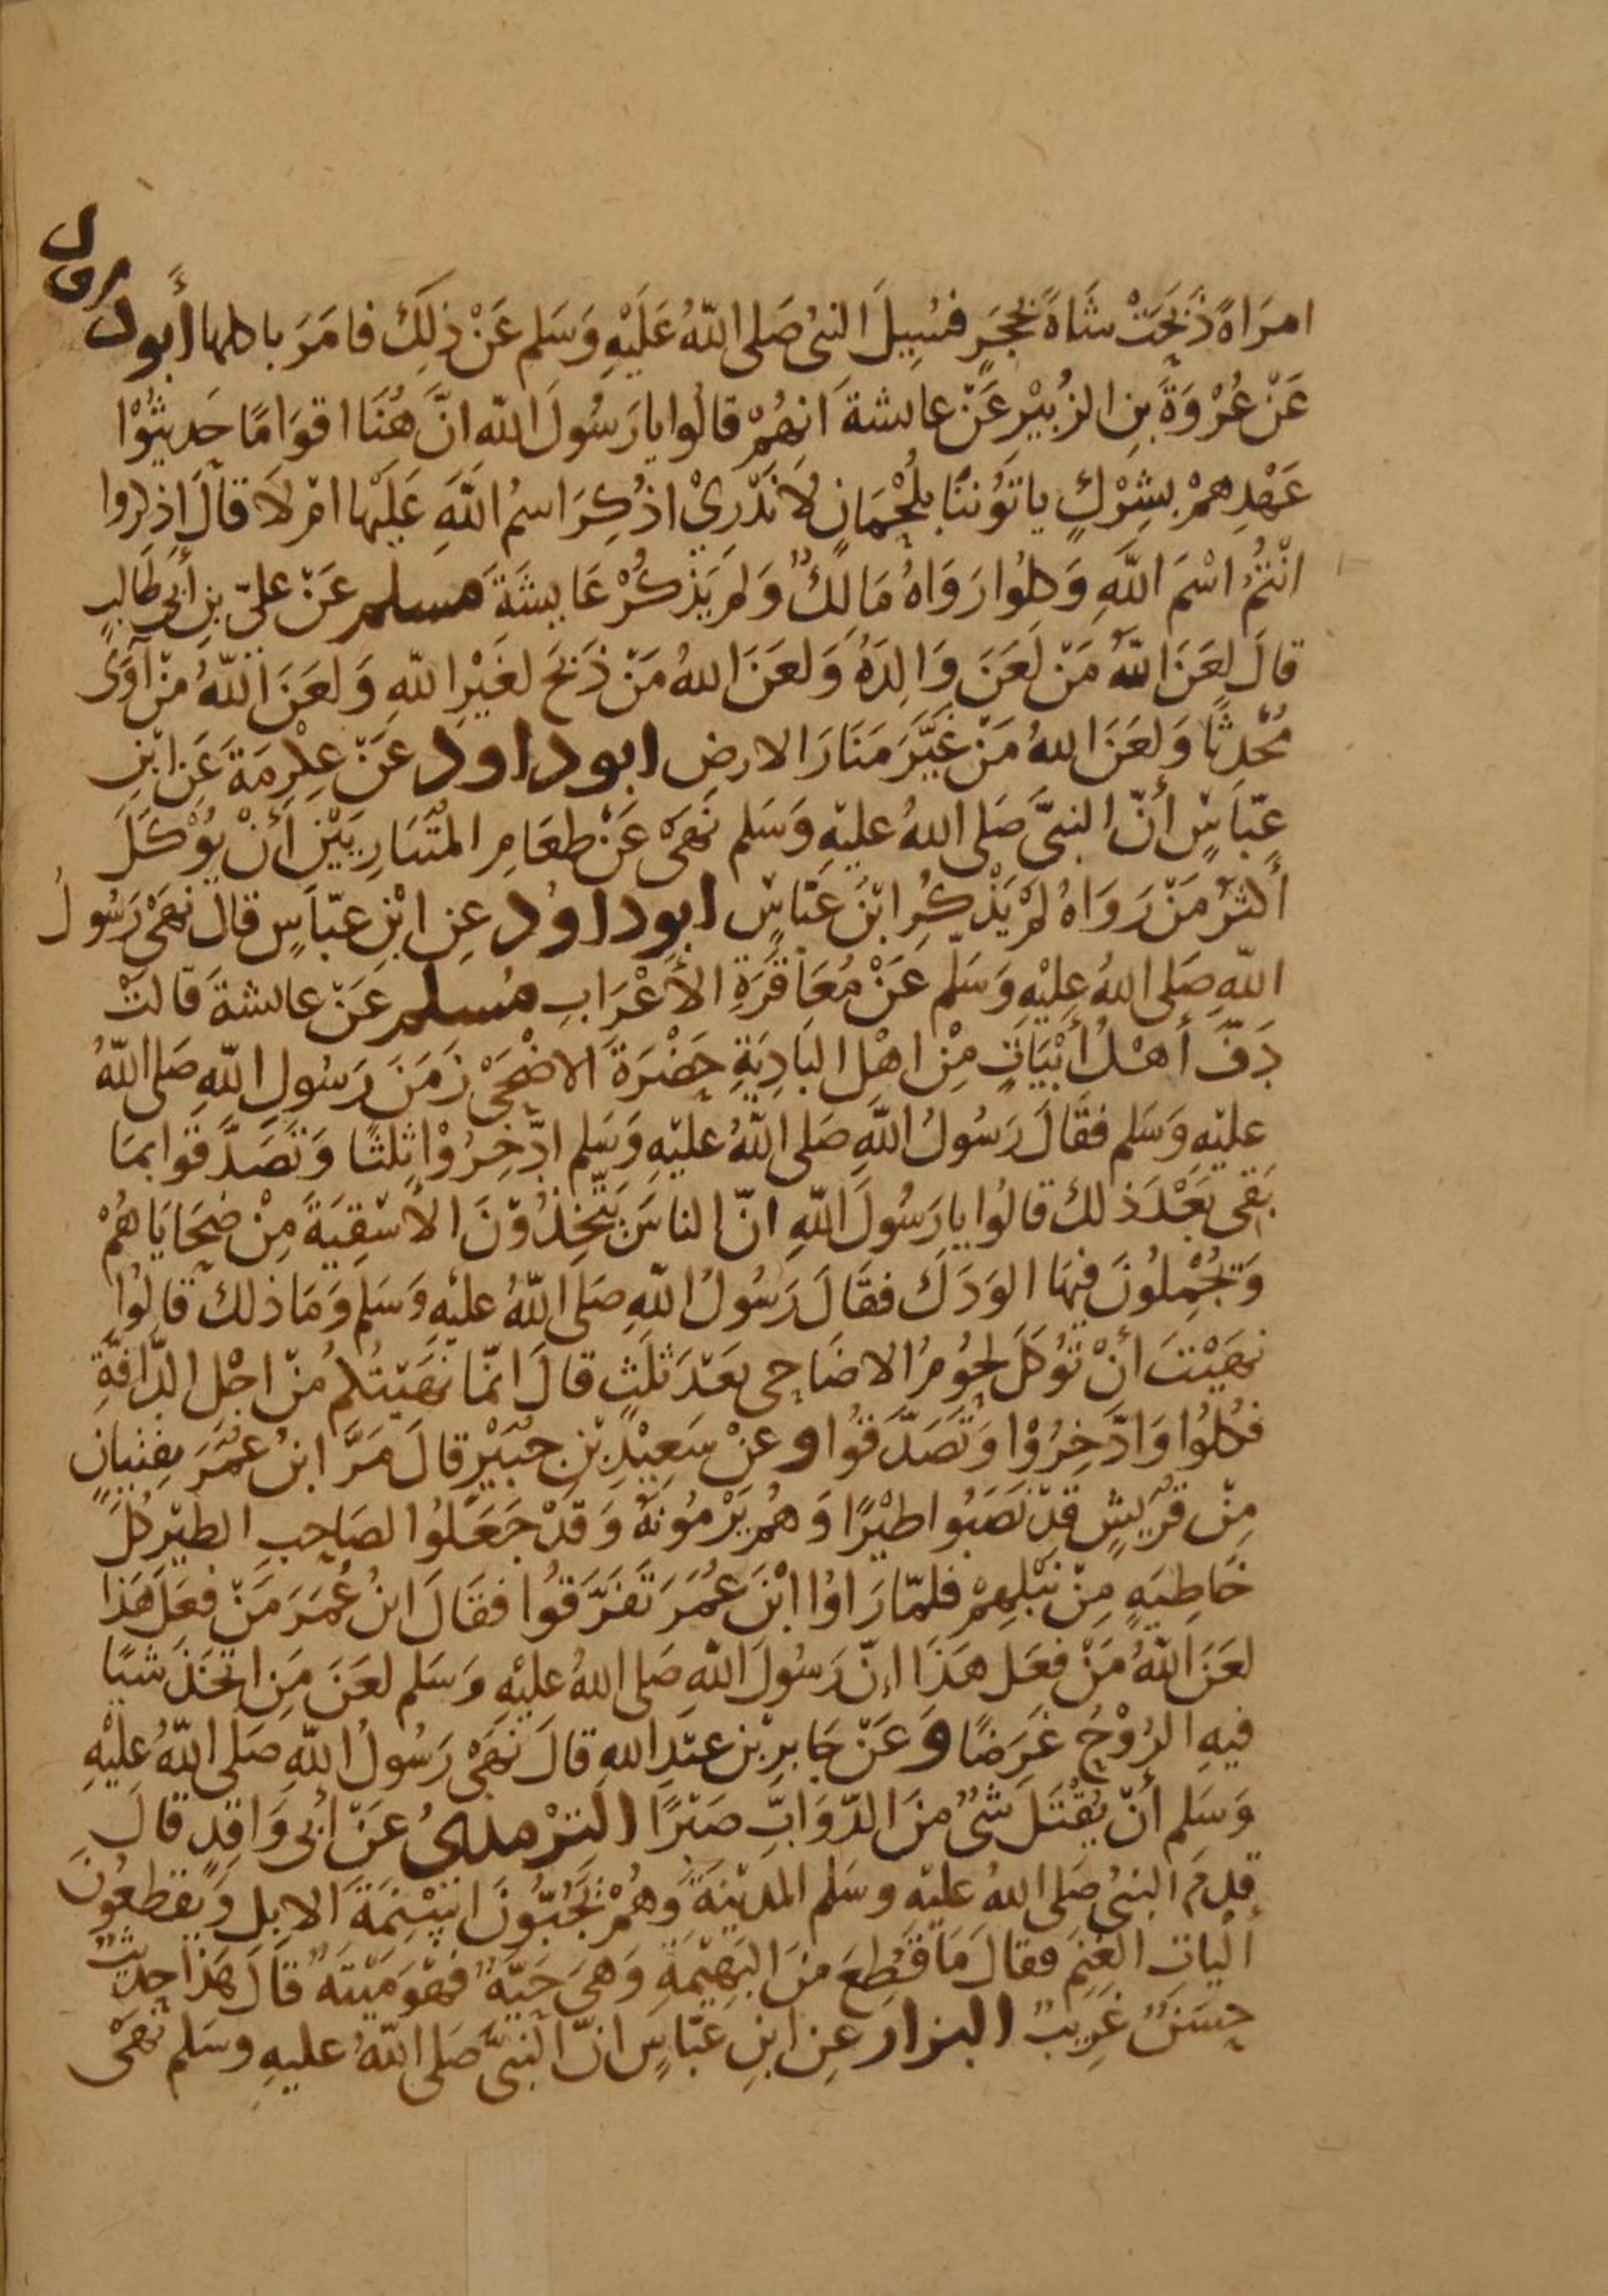 امرَاةً ذَبَحَتْ شَاةً بحَجَرٍ فسُيِلَ النبىُ صَلى اللهُ عَلَيْهِ وَسَلم عَنْ ذلِكَ فامَرَ باكلها أبو داود
عَنْ عُرْوَةَ بنِ الزُبيْرِ عَنْ عايشةَ انهُمْ قالُوا يا رَسُولَ الله انَّ هُنَا اقوَامًا حَديثُوْا
عَهْدِهمْ بشِرْكٍ ياتوُننَا بلُحْمَانٍ لَا نَدْرِيْ اذُكِرَ اسمُ اللهِ عَلَيْها امْ لَا قالَ اذكروا
انْتُمُ اسْمَ اللهِ وَكلوُا رَوَاهُ مَالِكٌ وَلم يَذْكُرْ عَايشَةَ مسلم عَنْ علىّ بنِ أبى طَالبٍ
قالَ لعَنَ اللهُ مَنْ لعَنَ وَالِدَهُ وَلعَنَ اللهُ مَنْ ذَبَحَ لغَيْرِ اللهِ وَلعَنَ اللهُ منْ آوَى
مُحْدِثًا وَلعَنَ اللهُ مَنْ غيَّرَ مَنَارَ الارضِ ابو داود عَنْ عِكْرِمَةَ عَنِ ابْنِ
عبَّاسٍ أنّ النبىَّ صَلى اللهُ عليْهِ وَسَلم نَهَى عَنْ طعَامِ المتَبَارِيَيْنِ أَنْ يُوْكَلَ
أكثرُ مَنْ رَوَاهُ لمْ يَذْكُرِ ابْنَ عبّاسٍ ابو داود عنِ ابْنِ عبّاسٍ قالَ نهَى رَسُولُ
اللهِ صَلى اللهُ عليْهِ وَسَلم عَنْ مُعَاقَرَةِ الأعْرَابِ مُسلم عَنْ عايشةَ قالتْ
دَفَّ أهْلُ أبْيَاتٍ مِنْ اهْلِ البَادِيَةِ حَضْرَةَ الاضْحَى زمَنَ رَسُولِ اللهِ صَلى اللهُ
عليْهِ وَسَلم فقَالَ رَسُولُ اللهِ صَلى اللهُ عليْهِ وَسَلم ادّخِرُوْا ثلثًا وَتَصَدَّقوا بمَا
بَقى بَعْدَ ذلك قالوُا يا رَسُولَ اللهِ انّ الناسَ يتّخِذُوْنَ الأسْقِيَةَ مِنْ ضَحَايَاهُمْ
وَيجْملوُنَ فيهَا الوَدَكَ فقَالَ رَسُولُ اللهِ صَلى اللهُ عليْهِ وَسَلم وَمَا ذلك قالوُا
نهَيْتَ أنْ تُوكَلَ لحُومُ الاضَاحِى بعْدَ ثلَثٍ قالَ انّما نهَيْتُكم منْ اجْلِ الدَّافَّةِ
فكلوُا وَادَّخِرُوْا وَتَصَدَّقُوا وعنْ سَعِيْدِ بْنِ جبَيْرٍ قالَ مَرَّ ابنُ عُمَرَ بفِتيانٍ
مِنْ قرَيشٍ قدْ نَصَبُوا طيْرًا وَهُمْ يَرْمُونهُ وَقدْ جَعَلوُا لصَاحِبِ الطيْرِ كلَّ
خَاطِيَهٍ مِنْ نَبْلِهِمْ فلمّا رَاوُا ابْنَ عُمَرَ تَفَرَّقوُا فقَالَ ابنُ عُمَرَ مَنْ فعَلَ هَذَا
لعَنَ اللهُ مَنْ فعَل هَذَا إنّ رَسُولَ اللهِ صَلى اللهُ عليْهِ وَسَلم لعَنَ مَنِ اتّخَذَ شيًا
فيهِ الرُوْحُ غرَضًا وَعَنْ جَابرِ بْنِ عبْدِ اللهِ قالَ نَهَى رَسُولُ اللهِ صَلَى اللهُ عليْهِ
وَسَلم أنْ يُقْتَلَ شىْ منَ الدّوَابِّ صَبْرًا الترْمدىُ عَنْ أبى وَاقدٍ قالَ
قدِمَ النبىُ صَلى اللهُ عليْه وسَلم المدينَةَ وَهُمْ يَجُبّوُنَ اسْنِمَةَ الابل وَيقطعُونَ
ألياتِ الغنَمِ فقالَ مَا قُطِعَ منَ البَهِيْمَةِ وَهىَ حَيّةٌ فهْوَ مَيْتَهٌ قالَ هَذا حديثٌ
حسَنٌ غَرِيبٌ البزار عنِ ابنِ عبّاسٍ انّ النبىَّ صَلى اللهُ عليهِ وسَلم نَهَى